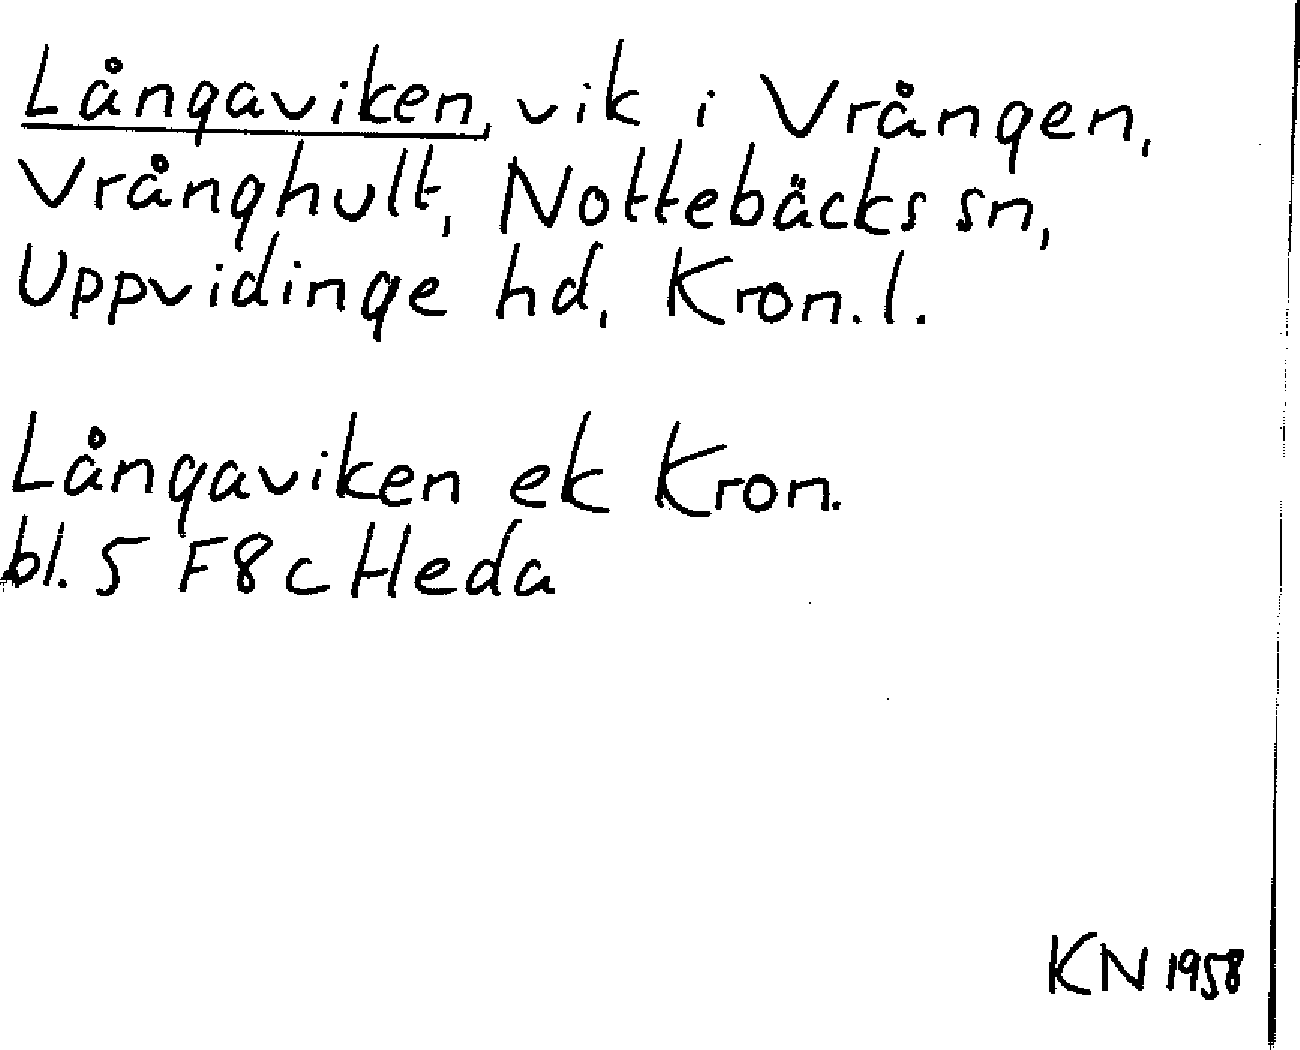 Långaviken, vik i Vrången,
Vrånghult, Nottebäcks sn,
Uppvidinge hd, Kron. l.
Långaviken ek Kron.
bl. 5 F8c Heda
KN 1958